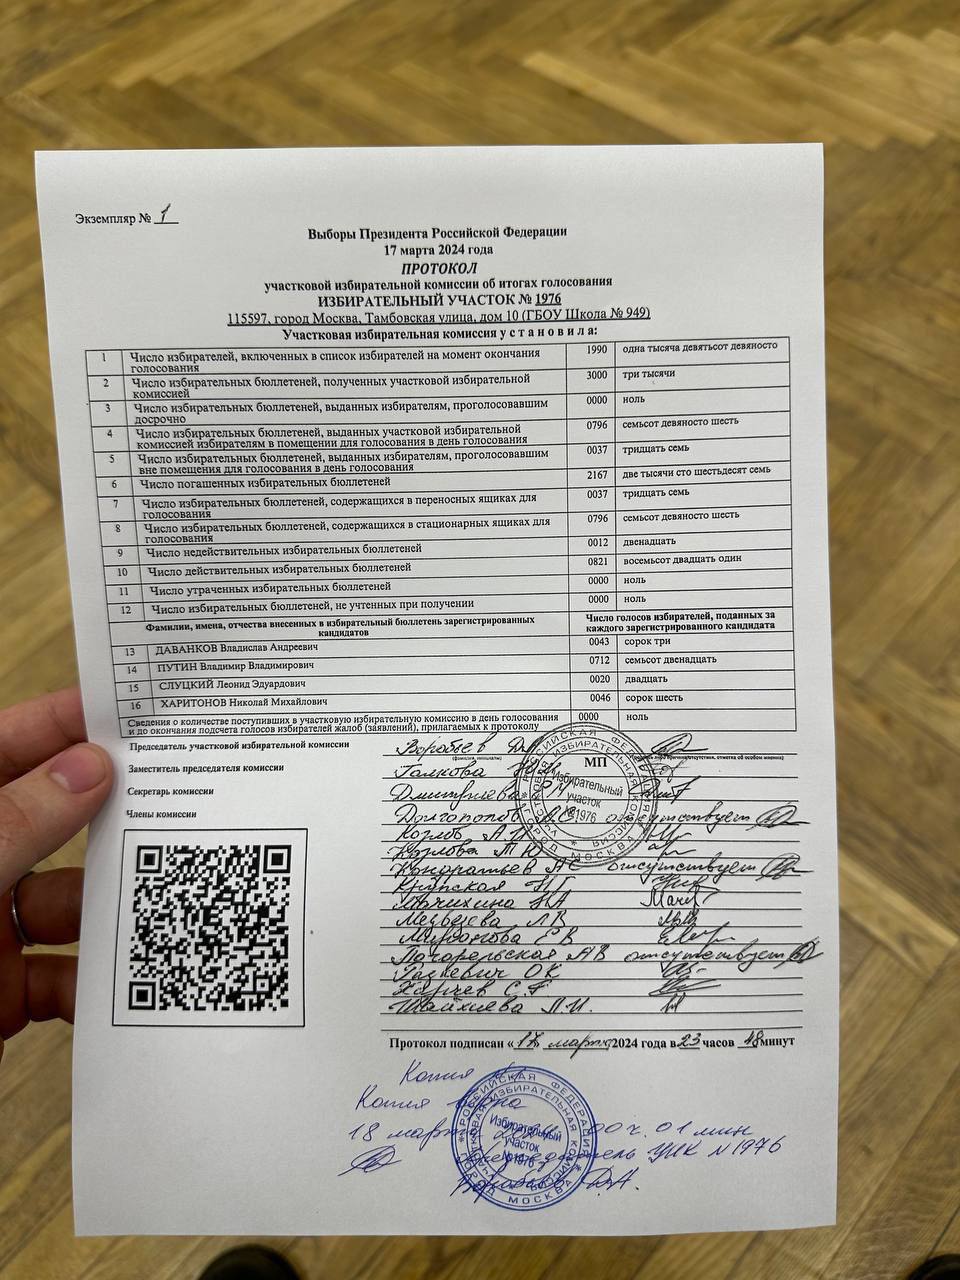 Экземпляр № 1
Выборы Президента Российской Федерации
17 марта 2024 года
ПРОТОКОЛ
участковой избирательной комиссии об итогах голосования
ИЗБИРАТЕЛЬНЫЙ УЧАСТОК № 1976
115597, город Москва, Тамбовская улица, дом 10 (ГБОУ Школа № 949)
Участковая избирательная комиссия у с т а н о в и л а:
1 Число избирателей, включенных в список избирателей на момент окончания 1990 одна тысяча девятьсот девяносто
голосования
2 Число избирательных бюллетеней, полученных участковой избирательной 3000 три тысячи
комиссией
3 Число избирательных бюллетеней, выданных избирателям, проголосовавшим 0000 ноль
досрочно
4 Число избирательных бюллетеней, выданных участковой избирательной 0796 семьсот девяносто шесть
комиссией избирателям в помещении для голосования в день голосования
5 Число избирательных бюллетеней, выданных избирателям, проголосовавшим 0037 тридцать семь
вне помещения для голосования в день голосования
6 Число погашенных избирательных бюллетеней 2167 две тысячи сто шестьдесят семь
7 Число избирательных бюллетеней, содержащихся в переносных ящиках для 0037 тридцать семь
голосования
8 Число избирательных бюллетеней, содержащихся в стационарных ящиках для 0796 семьсот девяносто шесть
голосования
9 Число недействительных избирательных бюллетеней 0012 двенадцать
10 Число действительных избирательных бюллетеней 0821 восемьсот двадцать один
11 Число утраченных избирательных бюллетеней 0000 ноль
12 Число избирательных бюллетеней, не учтенных при получении 0000 ноль
Фамилии, имена, отчества внесенных в избирательный бюллетень зарегистрированных Число голосов избирателей, поданных за
кандидатов каждого зарегистрированного кандидата
13 ДАВАНКОВ Владислав Андреевич 0043 сорок три
14 ПУТИН Владимир Владимирович 0712 семьсот двенадцать
15 СЛУЦКИЙ Леонид Эдуардович 0020 двадцать
16 ХАРИТОНОВ Николай Михайлович 0046 сорок шесть
Сведения о количестве поступивших в участковую избирательную комиссию в день голосования 0000 ноль
и до окончания подсчета голосов избирателей жалоб (заявлений), прилагаемых к протоколу
Председатель участковой избирательной комиссии Воробьев
МП
Заместитель председателя комиссии Галкова
Секретарь комиссии Дмитриева
Члены комиссии отсутствует
Козлов А
Козлова
Кондратьев АС отсутствует
Крупская
Медведева ЛВ
АВ отсутствует
ОК
Шайхиева Л.И.
РОССИЙСКАЯ ФЕДЕРАЦИЯ
УЧАСТКОВАЯ ИЗБИРАТЕЛЬНАЯ КОМИССИЯ
ГОРОД МОСКВА
Избирательный
участок
№ 1976
Протокол подписан «17» марта 2024 года в 23 часов 48 минут
Копия
Копия верна
18 марта 00 ч. 01 мин
председатель УИК N 1976
Воробьев Д.А.
РОССИЙСКАЯ ФЕДЕРАЦИЯ
УЧАСТКОВАЯ ИЗБИРАТЕЛЬНАЯ КОМИССИЯ
ГОРОД МОСКВА
Избирательный
участок
№ 1976